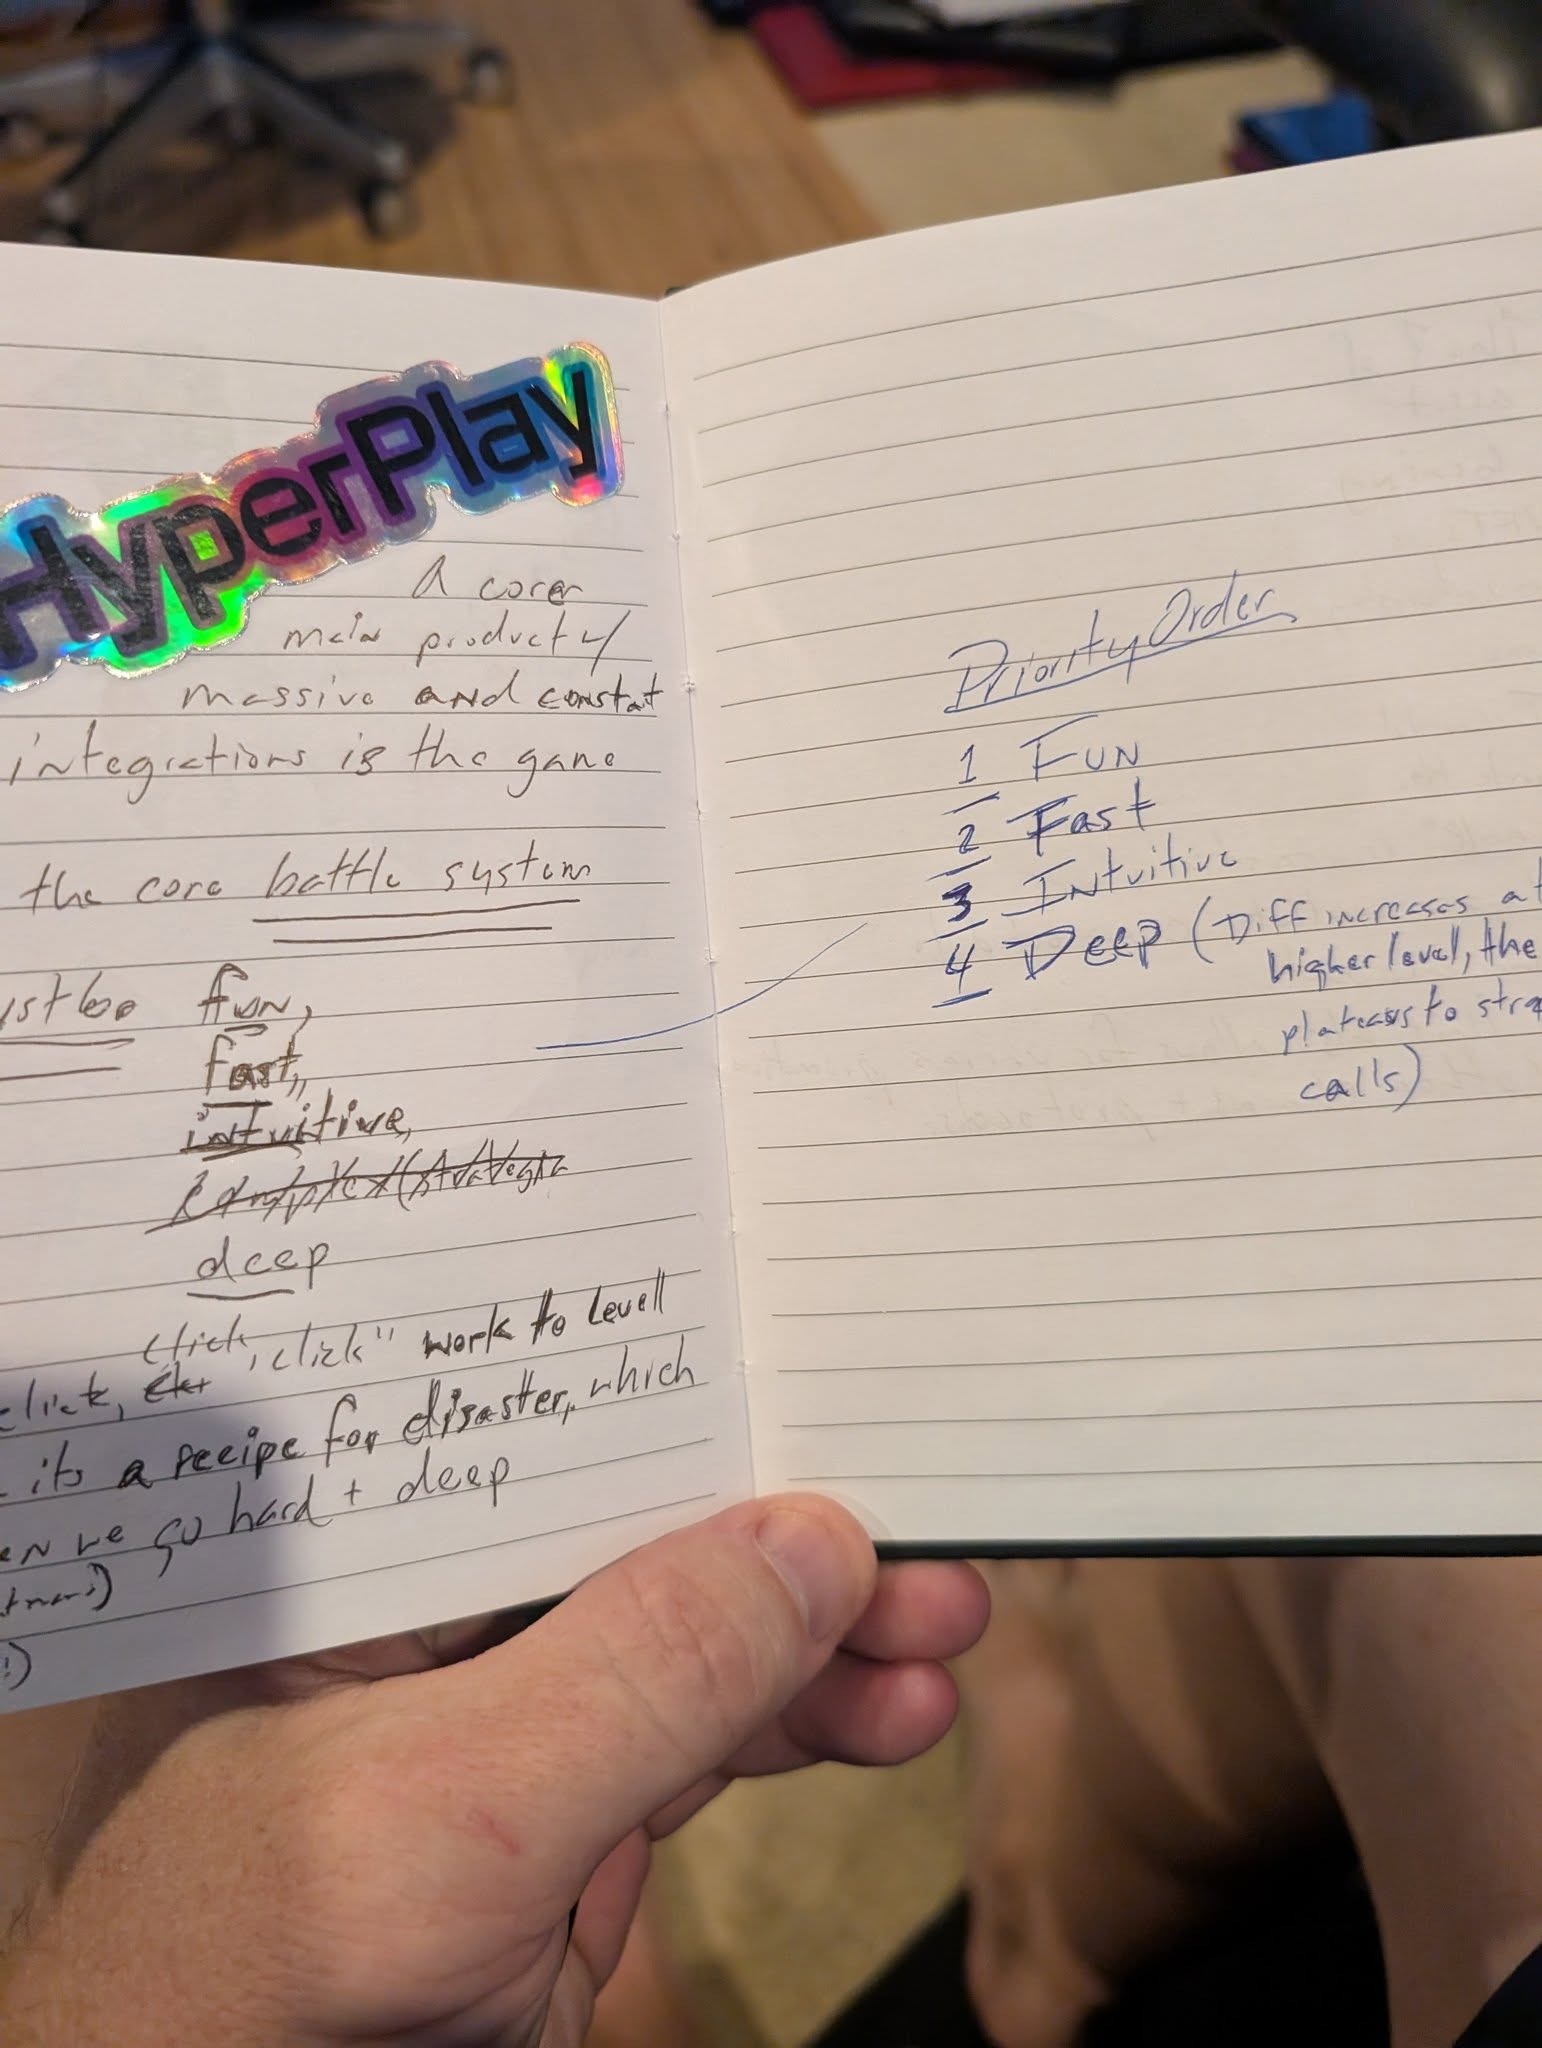 HyperPlay
A core
main product w/
massive and constat
integrations is the game
the core battle system
ust be fun,
fast,
intuitive,
complex (strategic
deep
click
click, "click" work to levell
its a recipe for disaster, which
en we go hard + deep
!)
Priority Order
1 FUN
2 Fast
3 Intuitive
4 Deep (Diff increases at
higher level, the
plateaus to stra
calls)